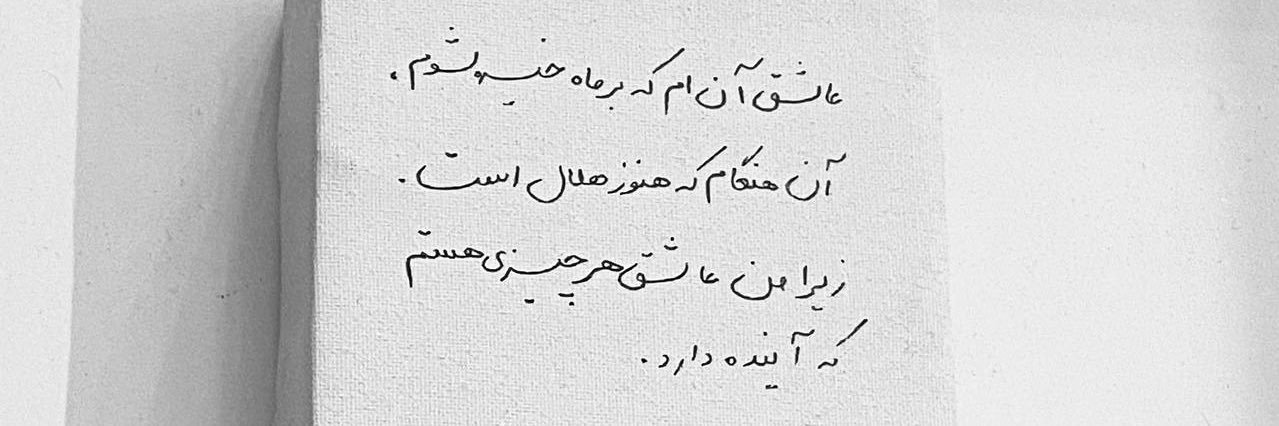 عاشق آن ام که بر ماه خیره شوم.
آن هنگام که هنوز هلال است.
زیرا من عاشق هر چیزی هستم
که آینده دارد.